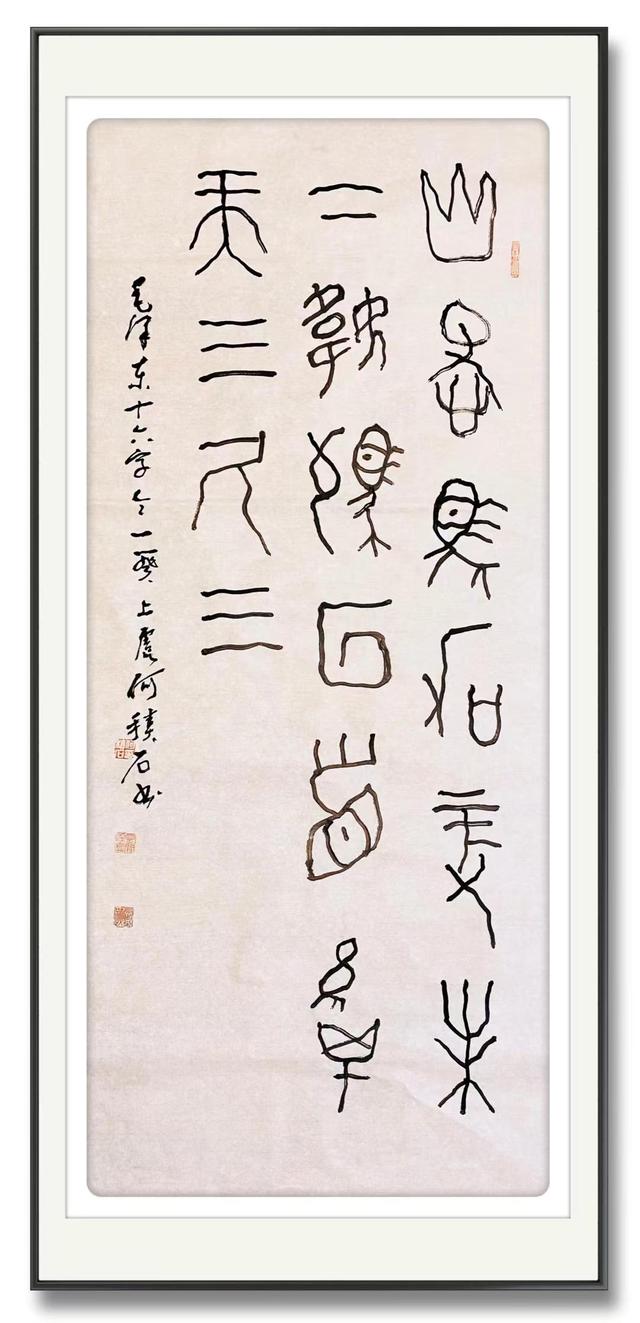 山快馬加鞭未
下鞍驚回首離
天三尺三
毛泽东十六字令一闋上虞何積石书